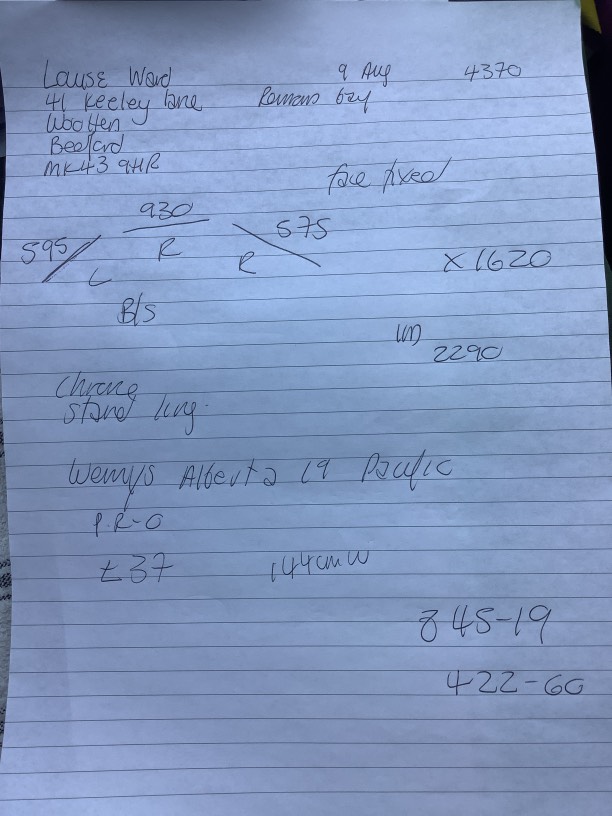 Louise Ward 9 Aug 4370
41 Keeley lane Romans bay
Wootten
Bedford
MK43 9HR
face fixed
930
595 575
R R x1620
L
B/S
2290
Chrome
stand
Wemys Alberta 19 Pacific
P.R-O
£37 144cm W
845-19
422-60